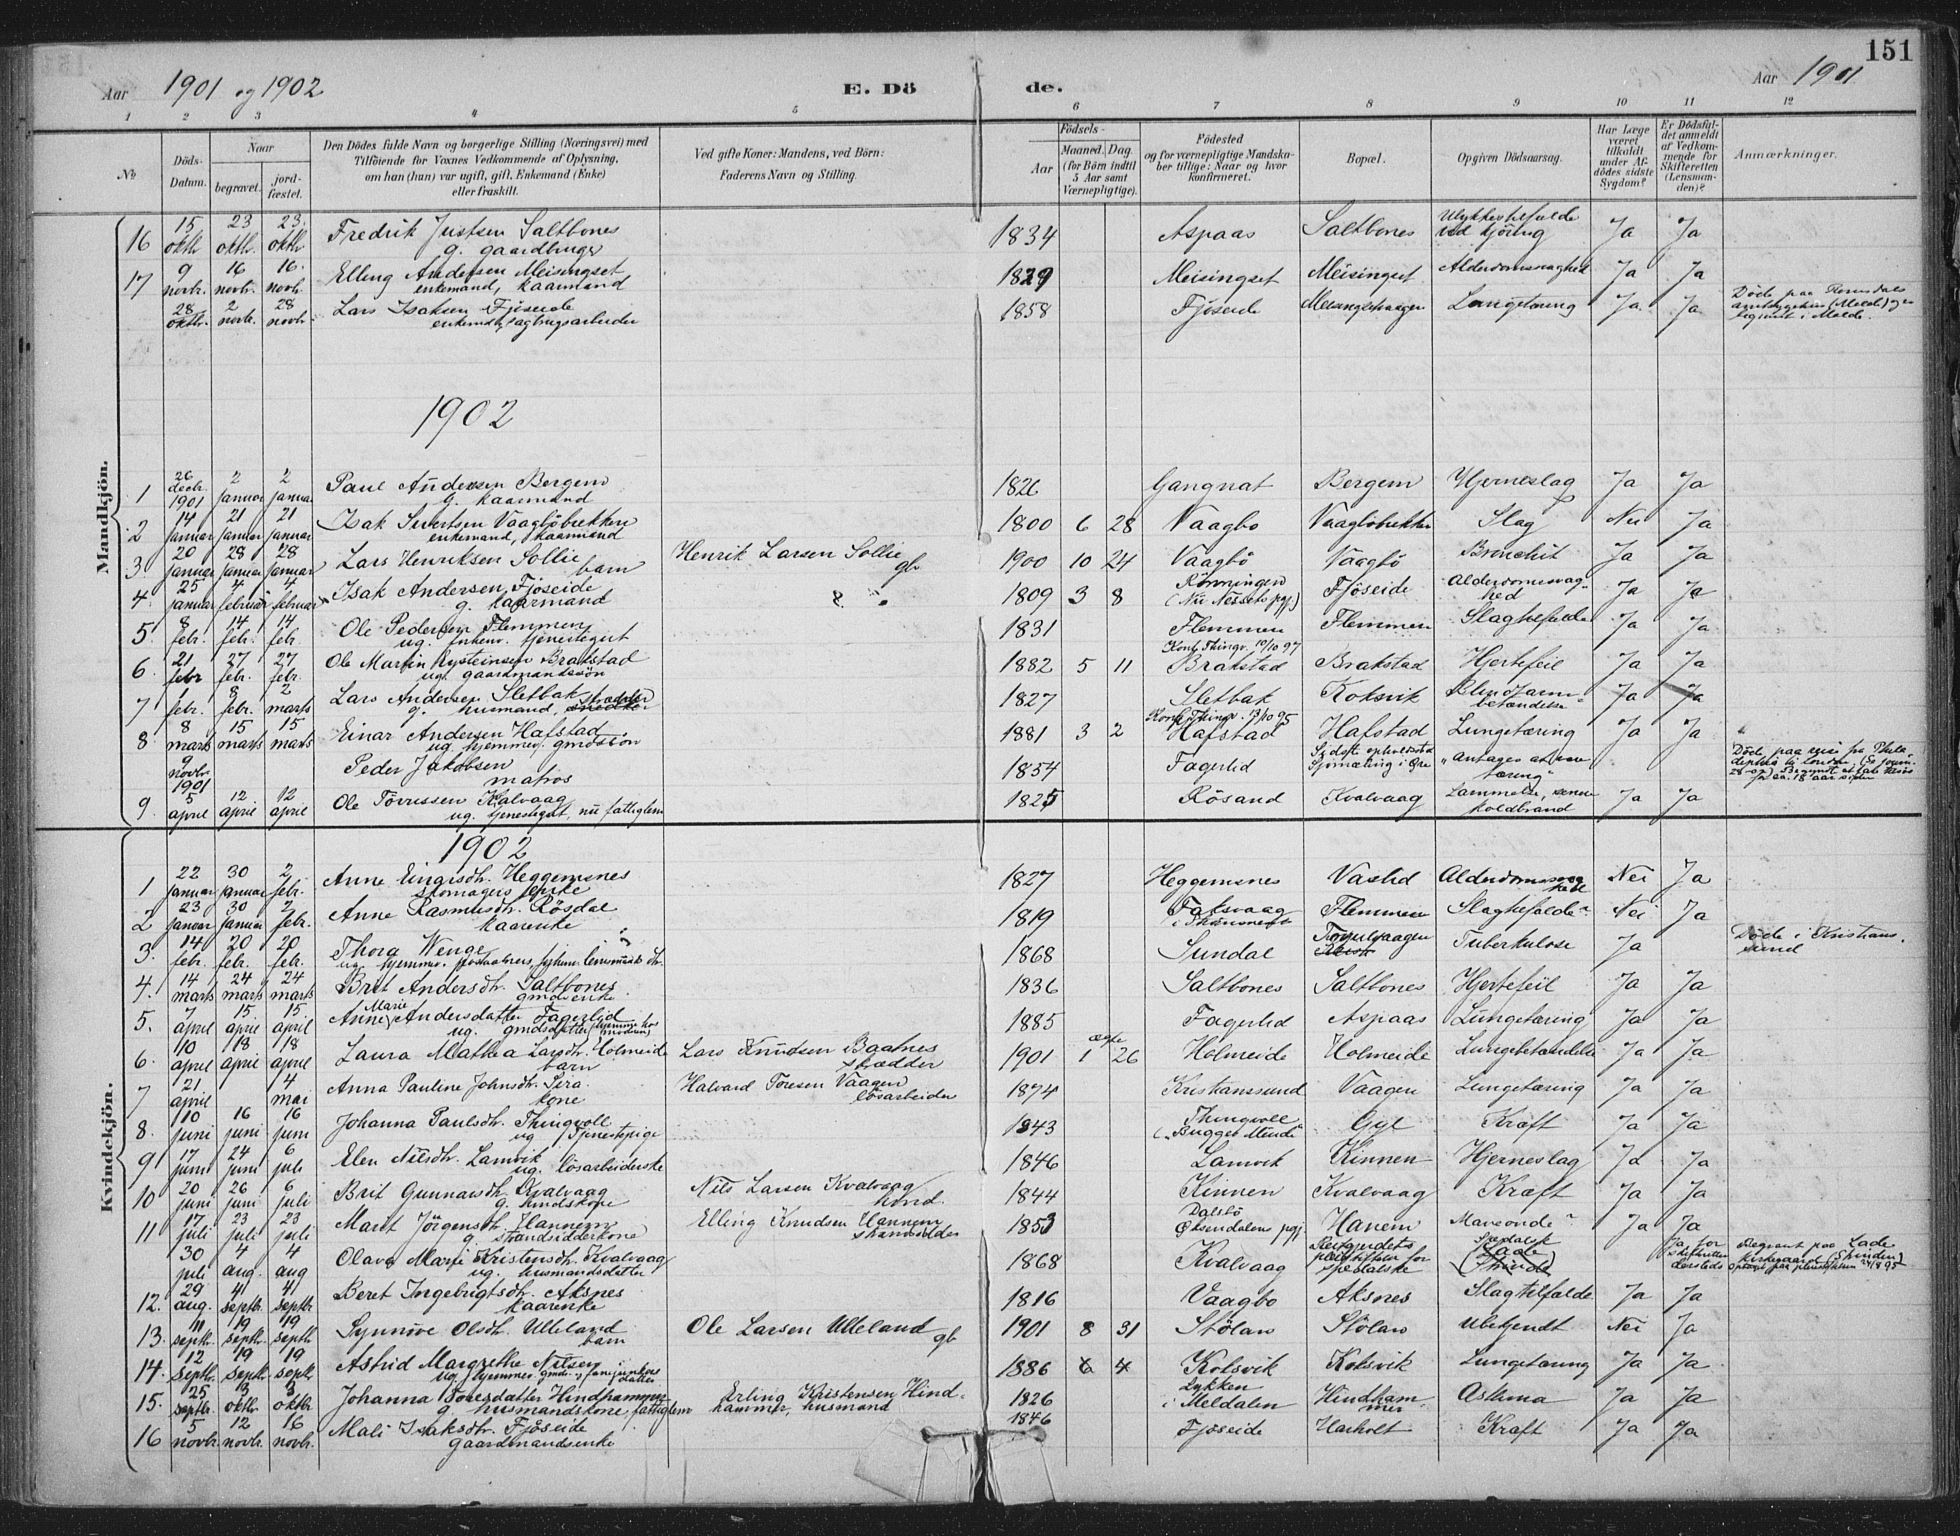 151
Aar 1901 og 1902 E. Dö de. Aar 1901
1 2 3 4 5 6 7 8 9 10 11 12
No
Döds-Datum.
Naar
begravet.
jord-fæstet.
Den Dödes fulde Navn og borgerlige Stilling (Næringsvei) med
Tilföiende for Voxnes Vedkommende af Oplysning,
om han (hun) var ugift, gift, Enkemand (Enke)
eller fraskilt.
Ved gifte Koner: Mandens, ved Börn:
Faderens Navn og Stilling.
Födsels-
Aar
Maaned. Dag.
(for Börn indtil
5 Aar samt
Værnepligtige).
Födested
og for værnepligtige Mandska-
ber tillige: Naar og hvor
konfirmeret.
Bopæl.
Opgiven Dödsaarsag.
Har Læge
været
tilkaldt
under Af-
dödes sidste
Sygdom?
Er Dödsfal-
det anmeldt
af Vedkom-
mende for
Skifteretten
(Lensman-
den)?
Anmærkninger.
Mandkjön.
16 15 oktbr 23 oktbr. 23 oktbr Fredrik Justsen Saltbones g. gaardbruger 1834 Aspaas Saltbones Ulykkestilfælde ved kjöring Ja Ja
17 9 novbr. 16 novbr. 16 novbr. Elling Andersen Meisingset enkemand, kaarmand 1829 Meisingset Meisingset Alderdomssvaghed Ja Ja
28 oktbr. 2 novbr. 28 novbr. Lars Isaksen Fjöseide 1858 Fjöseide Lungetæring Ja Ja Döde paa Romsdals amtssygehus (Molde) i Molde.
1902
1 26 decbr. 1901 2 januar 2 januar Paul Andersen Bergem g. kaarmand 1826 Gangnat Bergem Hjerneslag Ja Ja
2 14 januar 21 januar 21 januar Isak Sivertsen Vaagböbrekken enkemand, kaarmand 1800 6 28 Vaagbö Vaagböbrekken Slag Nei Ja
3. 20 januar 28 januar 28 januar Lars Henriksen Sollie barn Henrik Larsen Sollie gb 1900 10 24 Vaagbö Vaagbö Bronchit Ja Ja
4. 25 januar 4 februar 4 februar Isak Andersen Fjöseide g. kaarmand 1809 3 8 Rönningen (Nu Nessets pgj.) Fjöseide Alderdomssvaghed Ja Ja
5. 8 febr. 14 febr. 14 febr. Ole Pedersen Flemmen ug. tjenestegut 1831 Flemmen Flemmen Slagtilfælde Ja Ja
6. 21 febr 27 febr. 27 febr. Ole Martin Eysteinsen Brakstad ug. gaardmandssön 1882 5 11 Konf. Thingv. 10/10 97 Brakstad Brakstad Hjertefeil Ja Ja
7 febr. 8 febr. 2 marts Lars Andersen Sletbak g. husmand, 1827 Sletbak Koksvik Blindtarmbetændelse Ja Ja
8. 8 marts 15 marts 15 marts Einar Andersen Hafstad ug. hjemmev. gmdssön 1881 3 2 Konf. Thingv. 13/10 95 Hafstad Hafstad Lungetæring Ja Ja
9 novbr. 1901 Peder Jakobsen matros 1854 Fagerlid Sidste opholdssted i Öre "antages at tæring" Döde paa reise fra til London.
9. 5 april 12 april 12 april Ole Törrissen Kvalvaag ug. tjenestegut, nu fattiglem 1825 Rösand Kvalvaag Lammelse, senere koldbrand Ja Ja
Kvindekjön.
1902
1 22 januar 30 januar 2 febr. Anne Einarsdtr. Heggemsnes skomagers enke 1827 Heggemsnes Vaslid Alderdomssvaghed Nei Ja
2 23 januar 30 januar 2 febr. Anne Rasmusdtr. Rösdal kaarenke 1819 Flemmen Slagtilfælde Nei Ja
3. 14 febr. 20 febr. 20 febr. Thora Wenge 1868 Sundal Torvulvaagen Tuberkulose Ja Döde i Kristianssund
4. 14 marts 24 marts 24 marts Brit Andersdtr. Saltbones gmdsenke 1836 Saltbones Saltbones Hjertefeil Ja Ja
5. 7 april 15 april 15 april Anne Marie Andersdatter Fagerlid ug. gmdsdatter (hjemme hos moderen) 1885 Fagerlid Aspaas Lungetæring Ja Ja
6. 10 april 18 april 18 april Laura Mathea Larsdtr. Holmeide barn Lars Knudsen Baatnes skrædder ægte 1901 1 26 Holmeide Holmeide Lungebetændelse Ja Ja
7 21 april 4 mai Anna Pauline Johnsdtr. Lira kone Halvard Toresen Vaagen lösarbeider 1874 Kristianssund Vaagen Lungetæring Ja Ja
8. 10 juni 16 juni 16 juni Johanna Paulsdtr. Thingvoll ug tjenestepige 1843 Thingvoll Gyl Kræft Ja Ja
9 17 juni 24 juni 6 juli Elen Nilsdtr. Lamvik ug. lösarbeiderske 1846 Lamvik Kinnen Hjerneslag Ja Ja
10 20 juni 26 juni 6 juli Brit Gunnarsdtr. Kvalvaag g. Nils Larsen Kvalvaag 1844 Kinnen Kvalvaag Kræft Ja Ja
11 17 juli 23 juli 23 juli Marit Jörgensdtr. Hannem g. strandsidderkone Elling Knudsen Hannem strandsidder 1853 Dalsbö Öksendalens pgj Hanem Maveonde Ja Ja
30 juli 4 aug. 4 aug Olava Marie Kristensdtr. Kvalvaag ug. husmandsdatter 1868 Kvalvaag Reitgjerdets pleiestiftelse for spedalske Spedalsk Ja, for skifteretten dersteds Begravet paa Lade kirkegaard Optaget paa pleiestiftelsen 24/8 95
12. 29 aug. 4 septbr. 4 septbr Beret Ingebrigtsdtr. Aksnes kaarenke 1816 Vaagbö Aksnes Slagtilfælde Ja Ja
13. 11 septbr. 19 septbr. 19 septbr Synnöve Olsdtr. Ulleland barn Ole Larsen Ulleland gb 1901 8 31 Stölan Stölan Ubekjendt Nei Ja
14. 12 septbr. 19 septbr. 19 septbr Astrid Margrethe Nilsen 1886 6 4 Kolsvik Kolsvik Lungetæring Ja Ja
15. 25 septbr. 3 oktbr 5 oktbr Johanna Toresdatter Hindhammer g. husmandskone, fattiglem Erling Kristensen Hindhammer, husmand 1826 Lykken i Meldalen Hindhammer Asthma Ja Ja
16 5 novbr. 12 novbr. 16 novbr. Mali Isaksdtr. Fjöseide gaardmandsenke 1846 Fjöseide Harholt Kræft Ja Ja